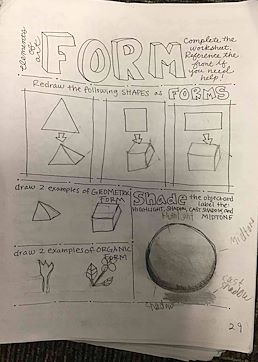 elements
of
art
FORM
Complete the
worksheet.
Reference the
front if
you need
help!
Redraw the following SHAPES as FORMS
draw 2 examples of GEOMETRIC
FORM
Shade the object and
label the:
HIGHLIGHT, SHADOW, CAST SHADOW, and
MIDTONE
Highlight
Midtone
draw 2 examples of ORGANIC
FORM
cast
shadow
Shadow
29